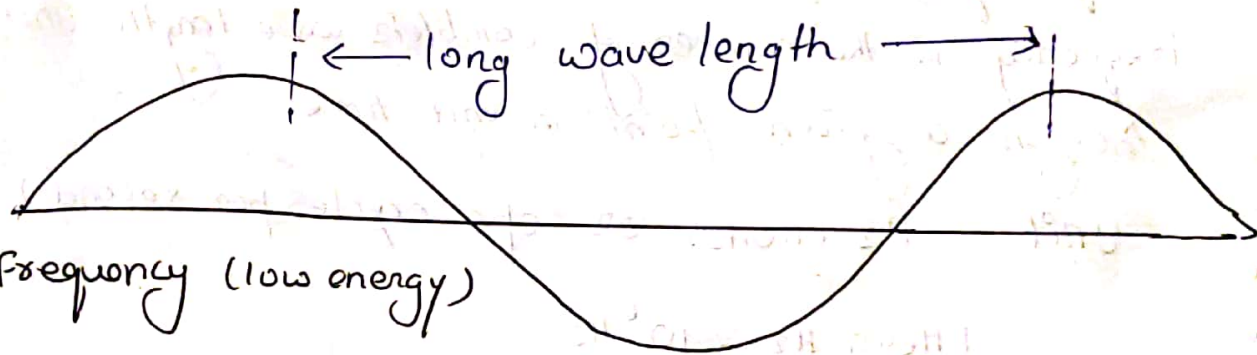 long wave length
frequency (low energy)